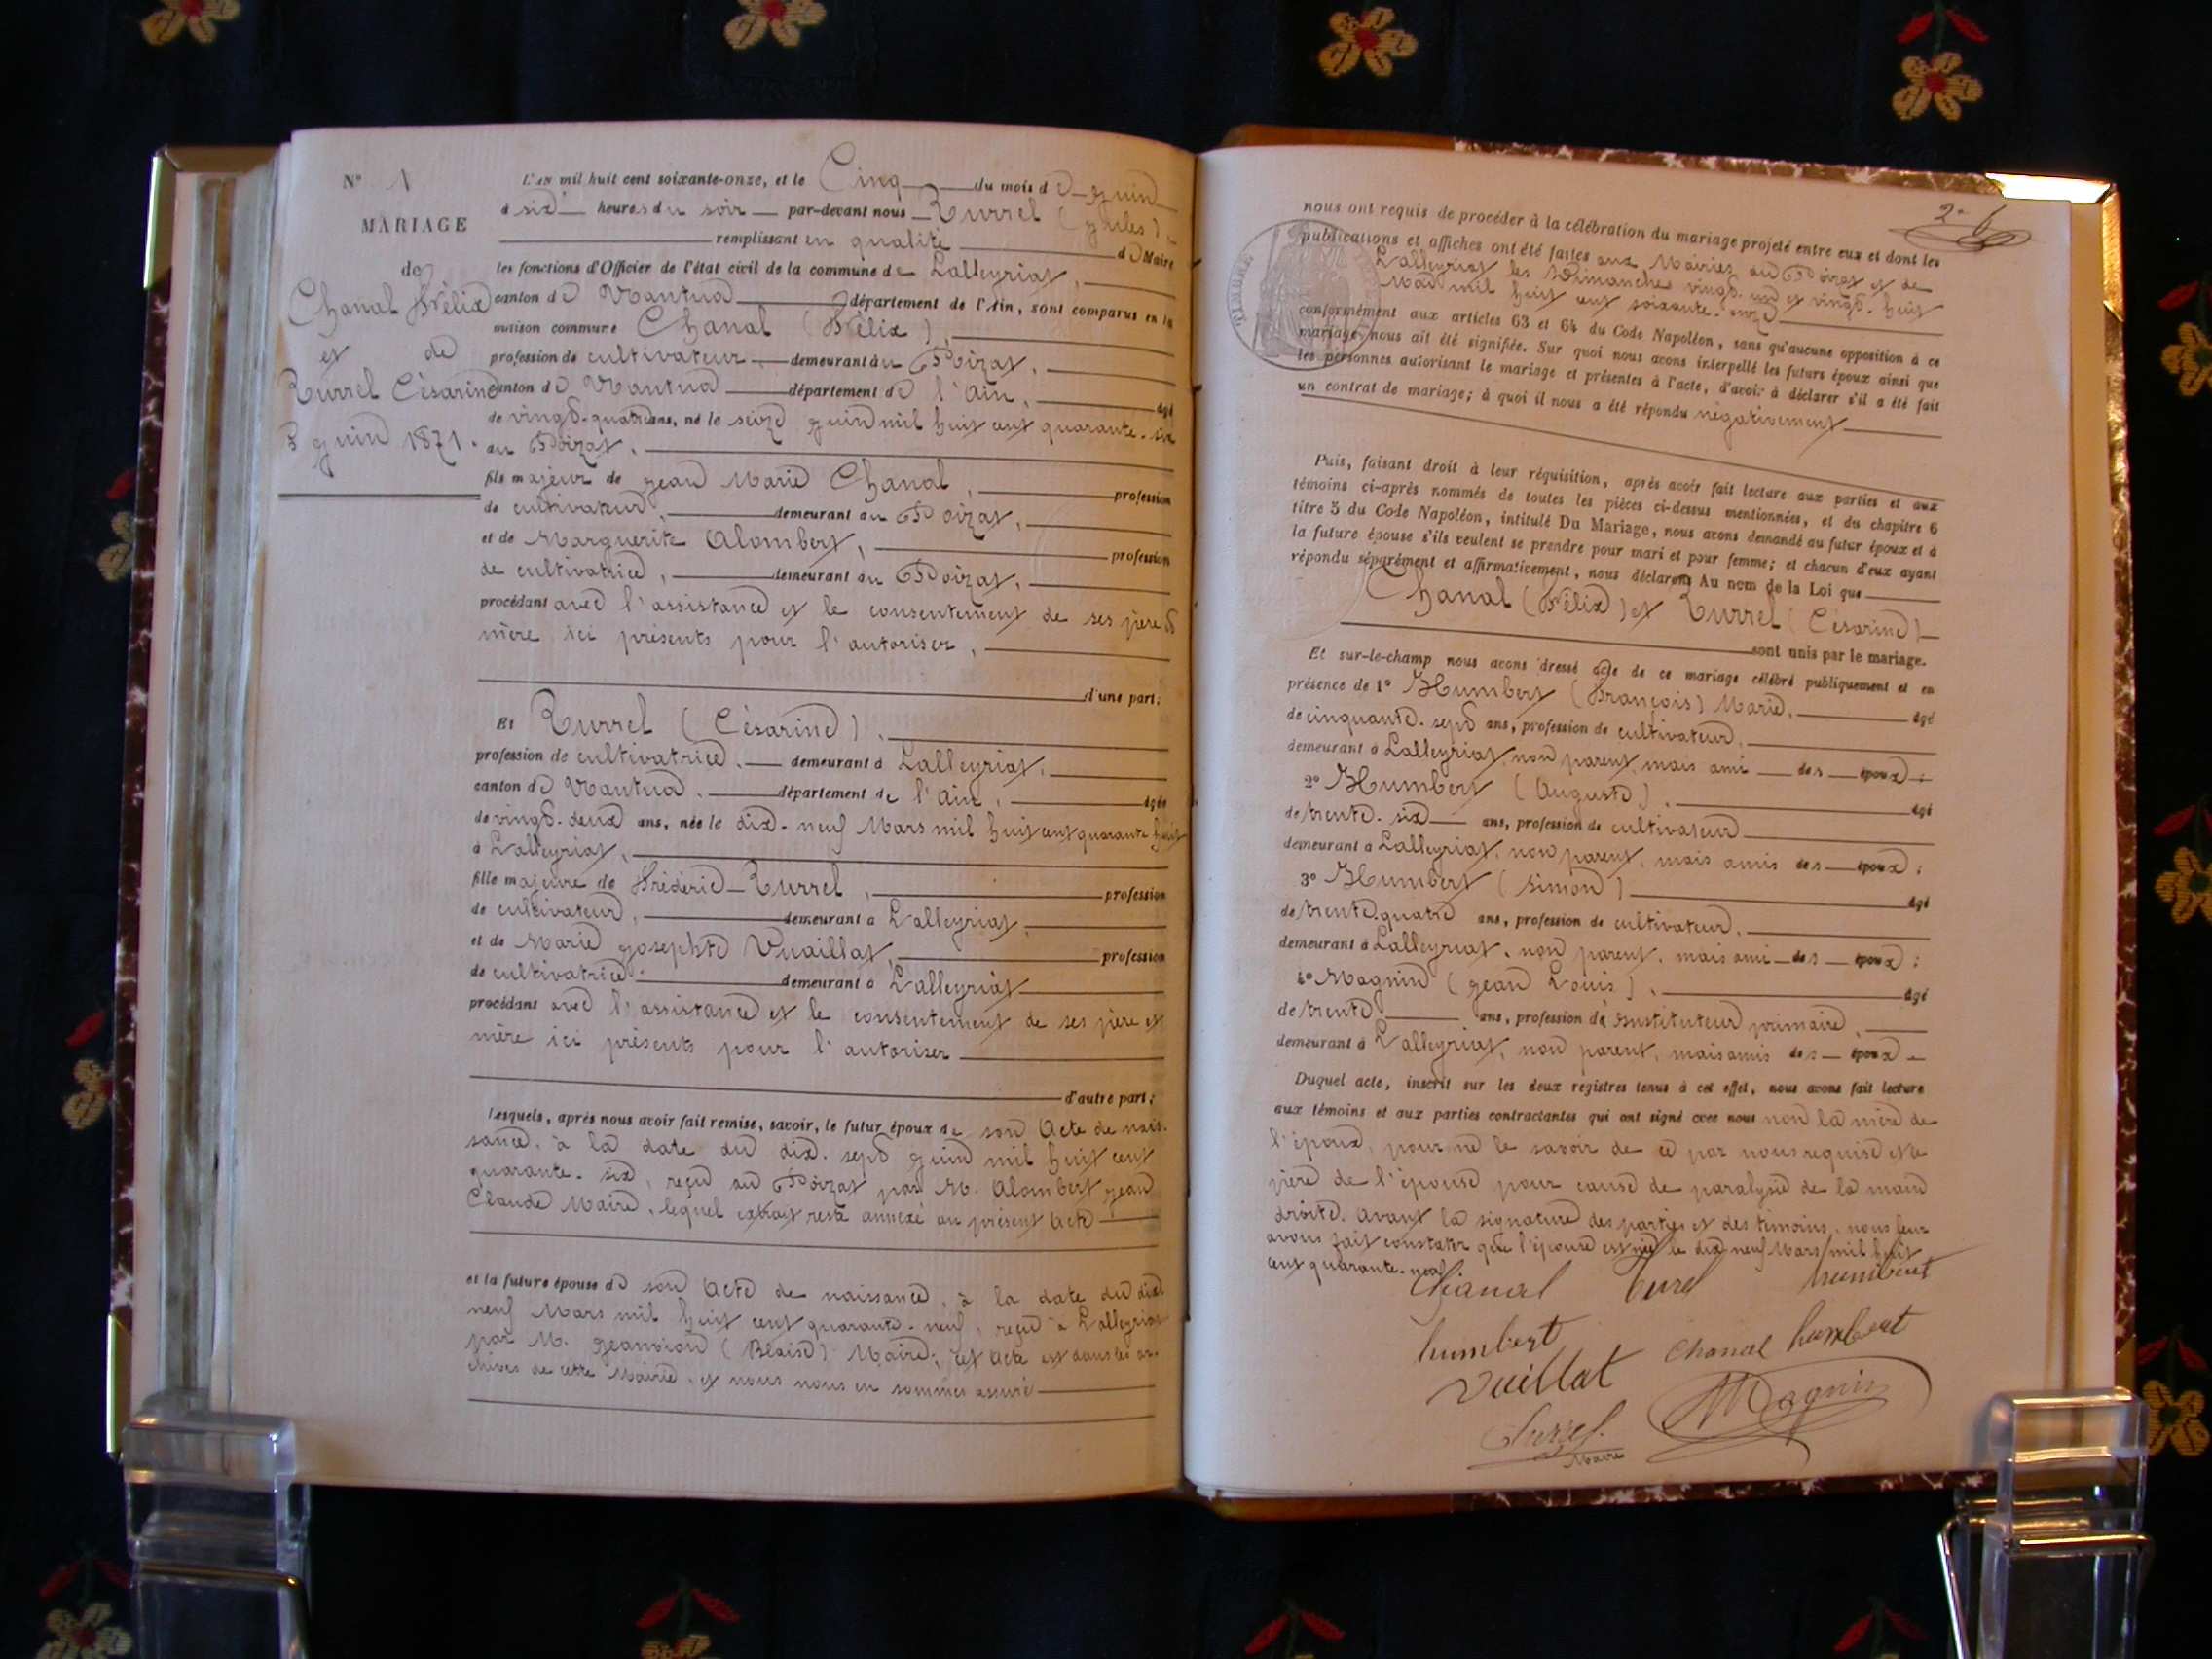 N° 1
MARIAGE
de
Chanal Félix
et de
Turrel Césarine
5 Juin 1871.
L'an mil huit cent soixante-onze, et le Cinq du mois de Juin
à six heures du soir par-devant nous Turrel (Jules)
remplissant en qualité de Maire
les fonctions d'Officier de l'état civil de la commune de Lalleyriat,
canton de Nantua département de l'Ain, sont comparus en la
maison commune Chanal (Félix),
profession de cultivateur demeurant au Poizat,
canton de Nantua département de l'Ain, âgé
de vingt-quatre ans, né le seize Juin mil huit cent quarante-six
au Poizat,
fils majeur de Jean Marie Chanal, profession
de cultivateur, demeurant au Poizat,
et de Marguerite Alombert, profession
de cultivatrice, demeurant au Poizat,
procédant avec l'assistance et le consentement de ses père et
mère ici présents pour l'autoriser,
d'une part;
Et Turrel (Césarine),
profession de cultivatrice, demeurant à Lalleyriat,
canton de Nantua, département de l'Ain, âgée
de vingt-deux ans, née le dix-neuf Mars mil huit cent quarante huit
à Lalleyriat,
fille majeure de Fréderic Turrel, profession
de cultivateur, demeurant à Lalleyriat,
et de Marie Josephte Vuaillat, profession
de cultivatrice demeurant à Lalleyriat
procédant avec l'assistance et le consentement de ses père et
mère ici présents pour l'autoriser
d'autre part;
Lesquels, après nous avoir fait remise, savoir, le futur époux de son Acte de nais-
sance, à la date du dix-sept Juin mil huit cent
quarante-six, reçu au Poizat par M. Alombert Jean
Claude Maire, lequel extrait reste annexé au présent Acte
et la future épouse de son Acte de naissance, à la date du dix
neuf Mars mil huit cent quarante-neuf, reçu à Lalleyriat
par M. (Blaise) Maire; cet Acte est dans les ar-
chives de cette Mairie, et nous nous en sommes assuré
2e 6
nous ont requis de procéder à la célébration du mariage projeté entre eux et dont les
publications et affiches ont été faites aux Mairies du Poizat et de
Lalleyriat les Dimanches vingt-un et vingt-huit
Mai mil huit cent soixante-onze
conformément aux articles 63 et 64 du Code Napoléon, sans qu'aucune opposition à ce
mariage nous ait été signifiée. Sur quoi nous avons interpellé les futurs époux ainsi que
les personnes autorisant le mariage et présentes à l'acte, d'avoir à déclarer s'il a été fait
un contrat de mariage; à quoi il nous a été répondu négativement
Puis, faisant droit à leur réquisition, après avoir fait lecture aux parties et aux
témoins ci-après nommés de toutes les pièces ci-dessus mentionnées, et du chapitre 6
titre 5 du Code Napoléon, intitulé Du Mariage, nous avons demandé au futur époux et à
la future épouse s'ils veulent se prendre pour mari et pour femme; et chacun d'eux ayant
répondu séparément et affirmativement, nous déclarons Au nom de la Loi que
Chanal (Félix) et Turrel (Césarine)
sont unis par le mariage.
Et sur-le-champ nous avons dressé acte de ce mariage célébré publiquement et en
présence de 1° Humbert (François) Marie, âgé
de cinquante-sept ans, profession de cultivateur,
demeurant à Lalleyriat, non parent, mais ami des époux;
2° Humbert (Auguste), âgé
de trente-six ans, profession de cultivateur
demeurant à Lalleyriat, non parent, mais amis des époux;
3° Humbert (Simon) âgé
de trente-quatre ans, profession de cultivateur,
demeurant à Lalleyriat, non parent, mais ami des époux;
4° Magnin (Jean Louis), âgé
de trente ans, profession de Instituteur primaire,
demeurant à Lalleyriat, non parent, mais amis des époux
Duquel acte, inscrit sur les deux registres tenus à cet effet, nous avons fait lecture
aux témoins et aux parties contractantes qui ont signé avec nous non la mère de
l'époux, pour ne le savoir de ce par nous requise et le
père de l'épouse pour cause de paralysie de la main
droite. Avant la signature des parties et des témoins, nous leur
avons fait constater que l'épouse est née le dix neuf Mars mil huit
cent quarante-neuf
Chanal Turel humbert
humbert Chanal humbert
Vuillat Magnin
Turrel.
Maire